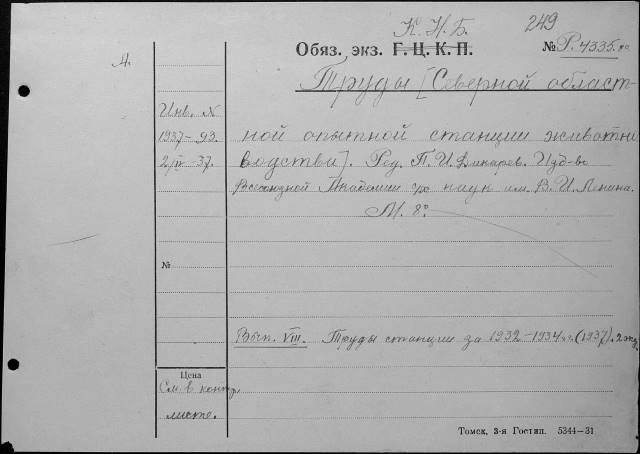 К. Н. Б. 249
Обяз. экз. Г. Ц. К. П. № Р. 4335.
Труды [Северной област-
Инв. N
1937-93.
2/IV-37.
ной опытной станции животно
водства]. Ред. П. И. Дикарев. Изд-во
Всесоюзной Академии с/хо наук им. В. И. Ленина.
М. 8°
№
Вып. VIII. Труды станции за 1932-1934 гг. (1937). 2 экз.
Цена
См. в контр.
листе.
Томск, 3-я Гостип. 5344-31